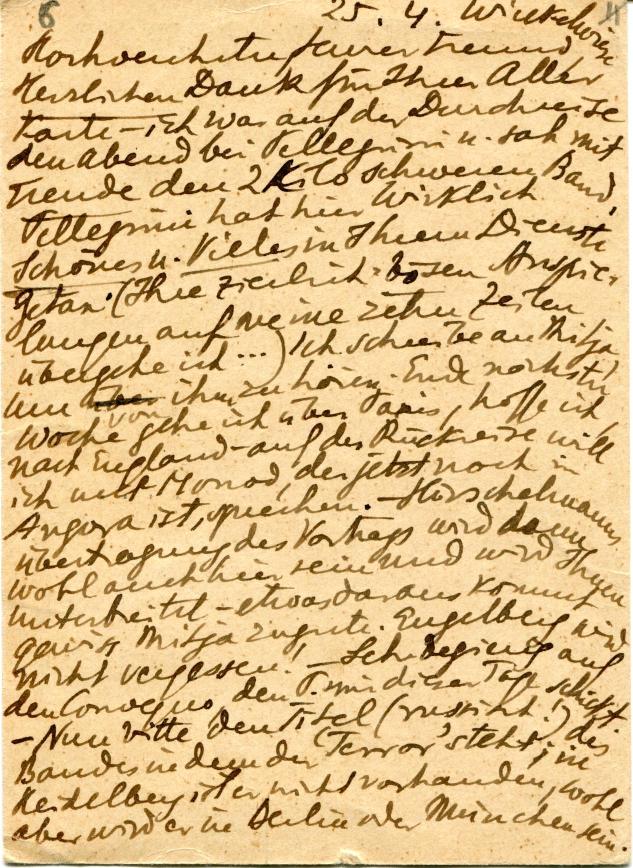 6
25. 4. Winkelwiese 4
Hochverehrter teurer Freund,
Herzlichen Dank für Ihre Aller
Karte – ich war auf der Durchreise
den Abend bei Pellegrini u. sah mit
Freude den 2 Kilo schweren Band,
Pellegrini hat hier wirklich
Schönes u. Vieles in Ihrem Dienste
getan. (Ihre zierlich-bösen Anspie-
lungen auf meine zehn Zeilen
übergehe ich ...) Ich schreibe an Mitja
um von ihm zu hören. Ende nächster
Woche gehe ich über Paris, hoffe ich,
nach England – auf der Rückreise will
ich mit Monod, der jetzt noch in
Angora ist, sprechen. – Hirschelmanns
übertragung des Vortrags wird dann
wohl auch hier sein und wird Ihnen
unterbreitet – etwas daraus kommt
gewiss Mitja zugute. Engelberg wird
nicht vergessen! – Sehr begierig auf
den Convegno, den P. mir dieser Tage schickt.
– Nun bitte den Titel (russisch!) des
Bandes in dem der "Terror" steht; in
Heidelberg ist er nicht vorhanden, wohl
aber wird er in Berlin oder München sein.